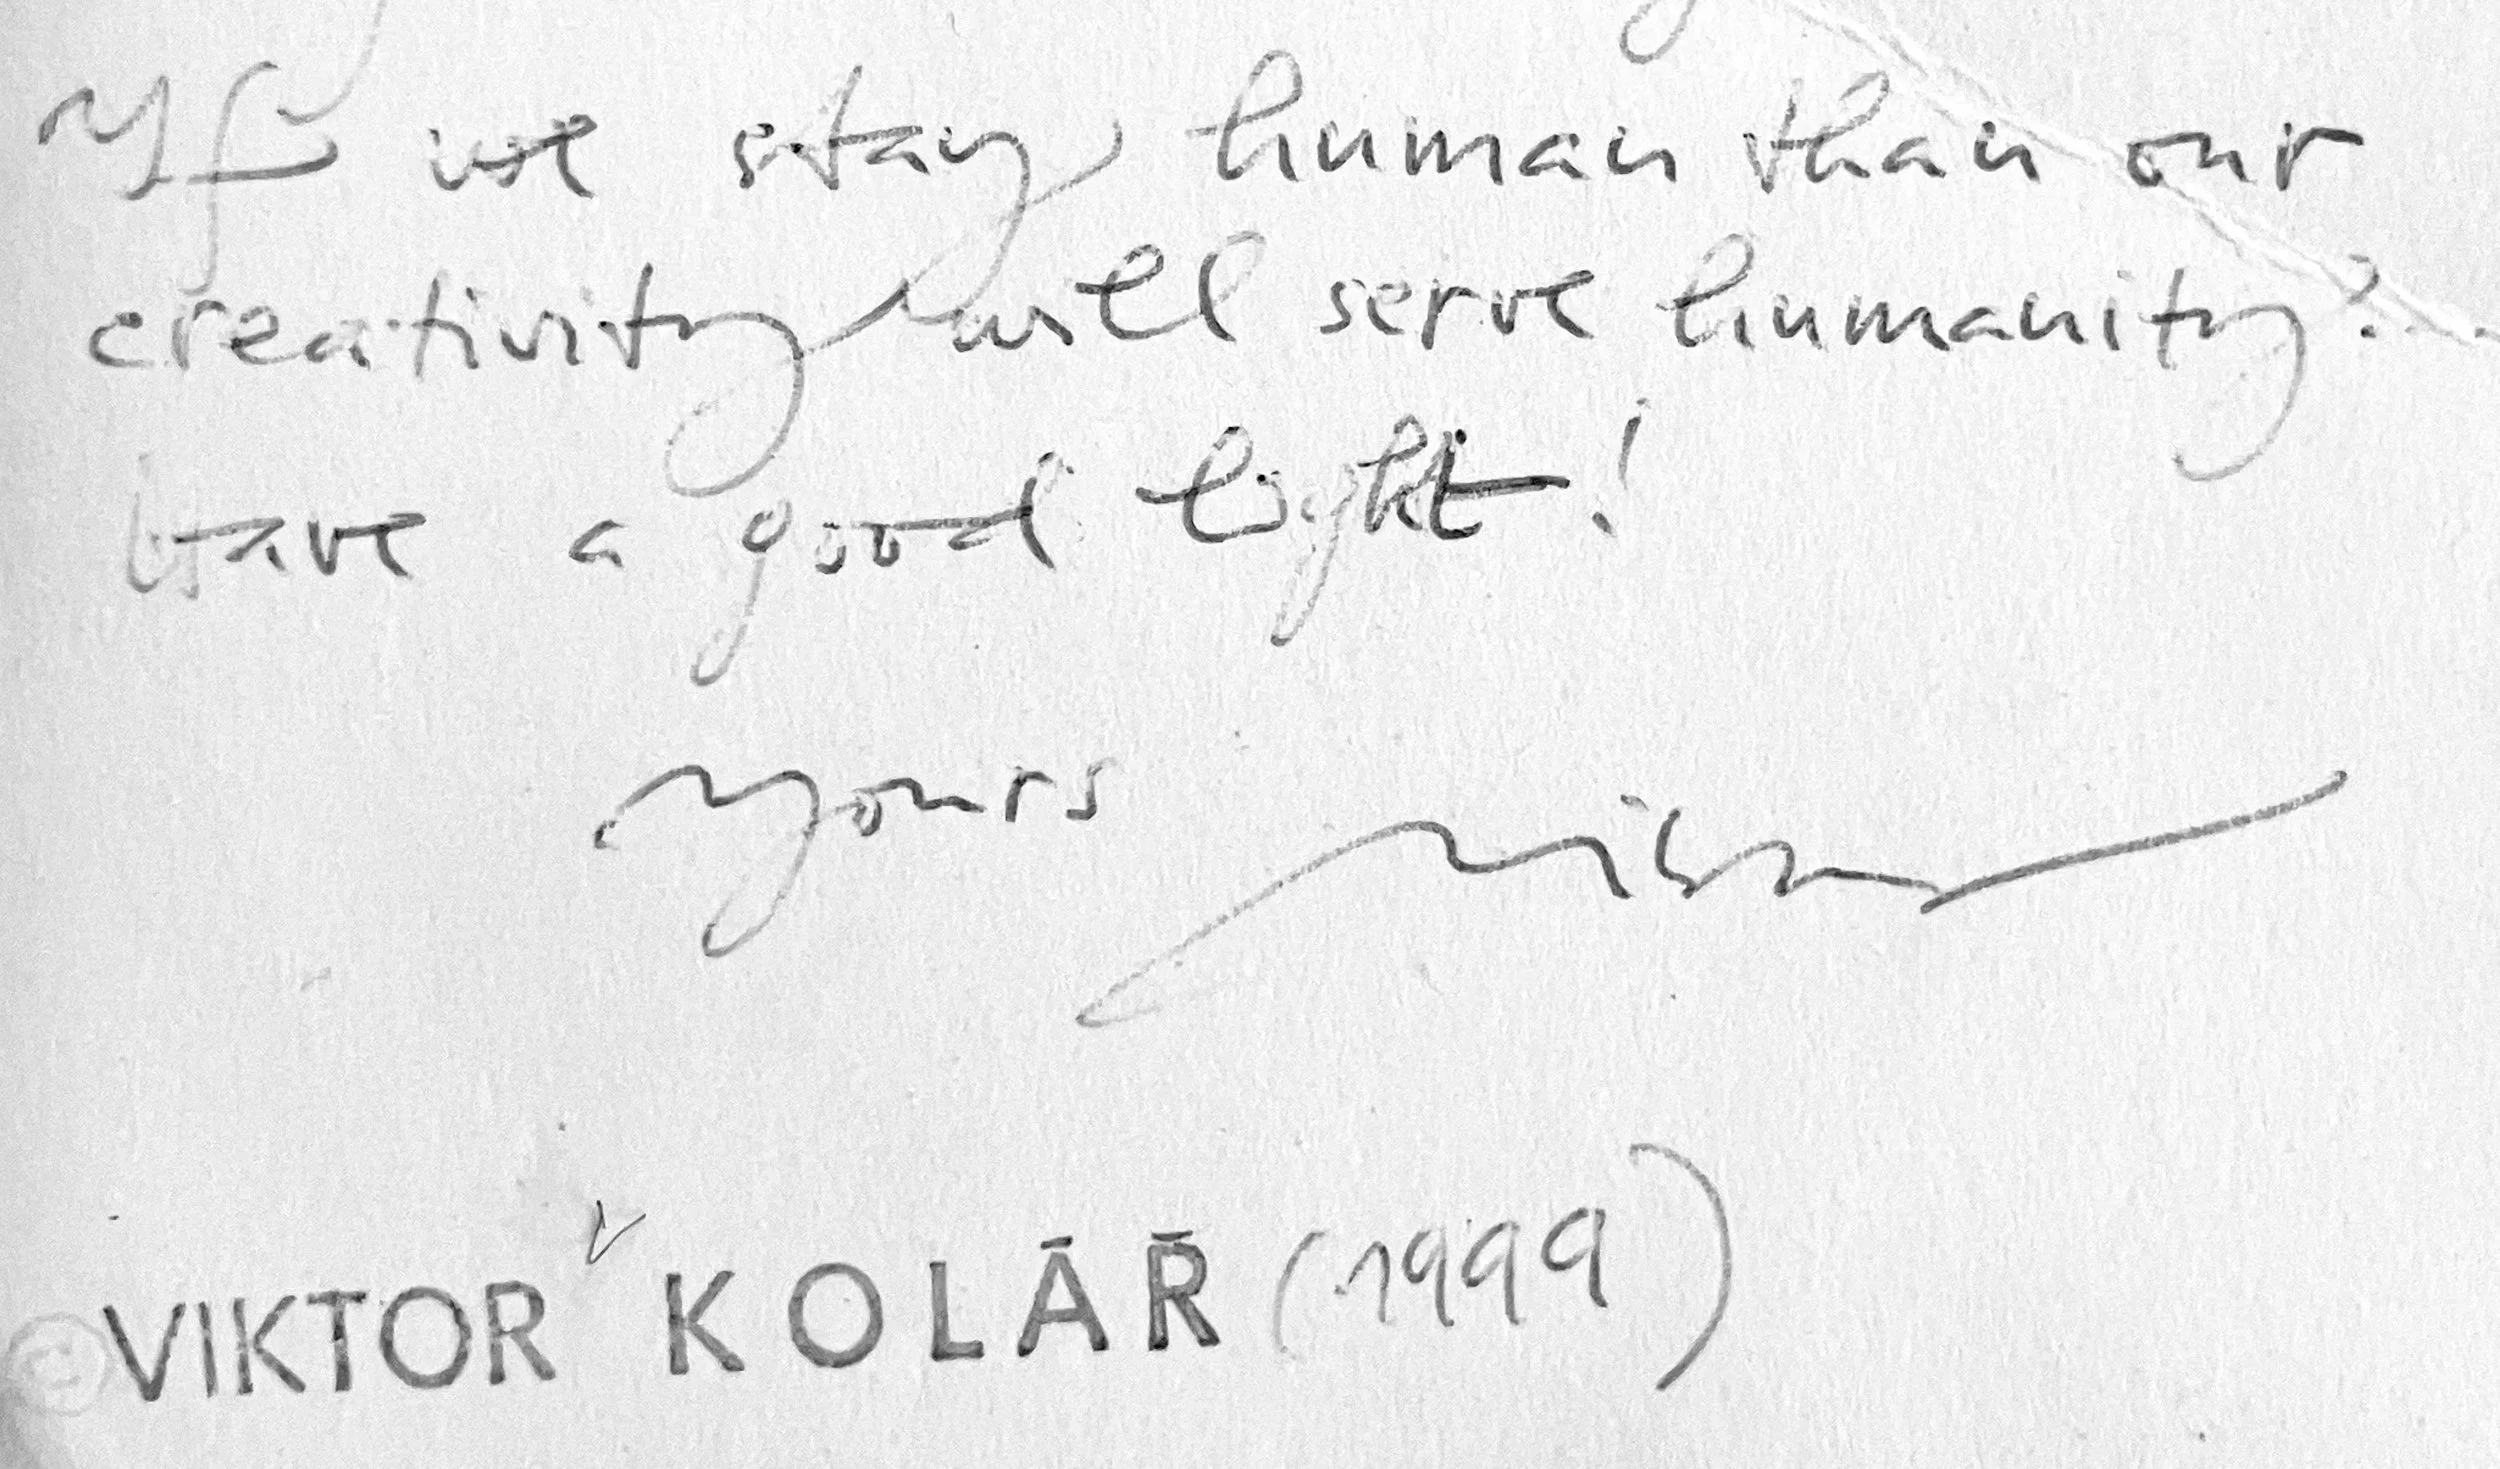 If we stay human than our
creativity will serve humanity?
Have a good light!
Yours
© VIKTOR KOLÁŘ (1999)